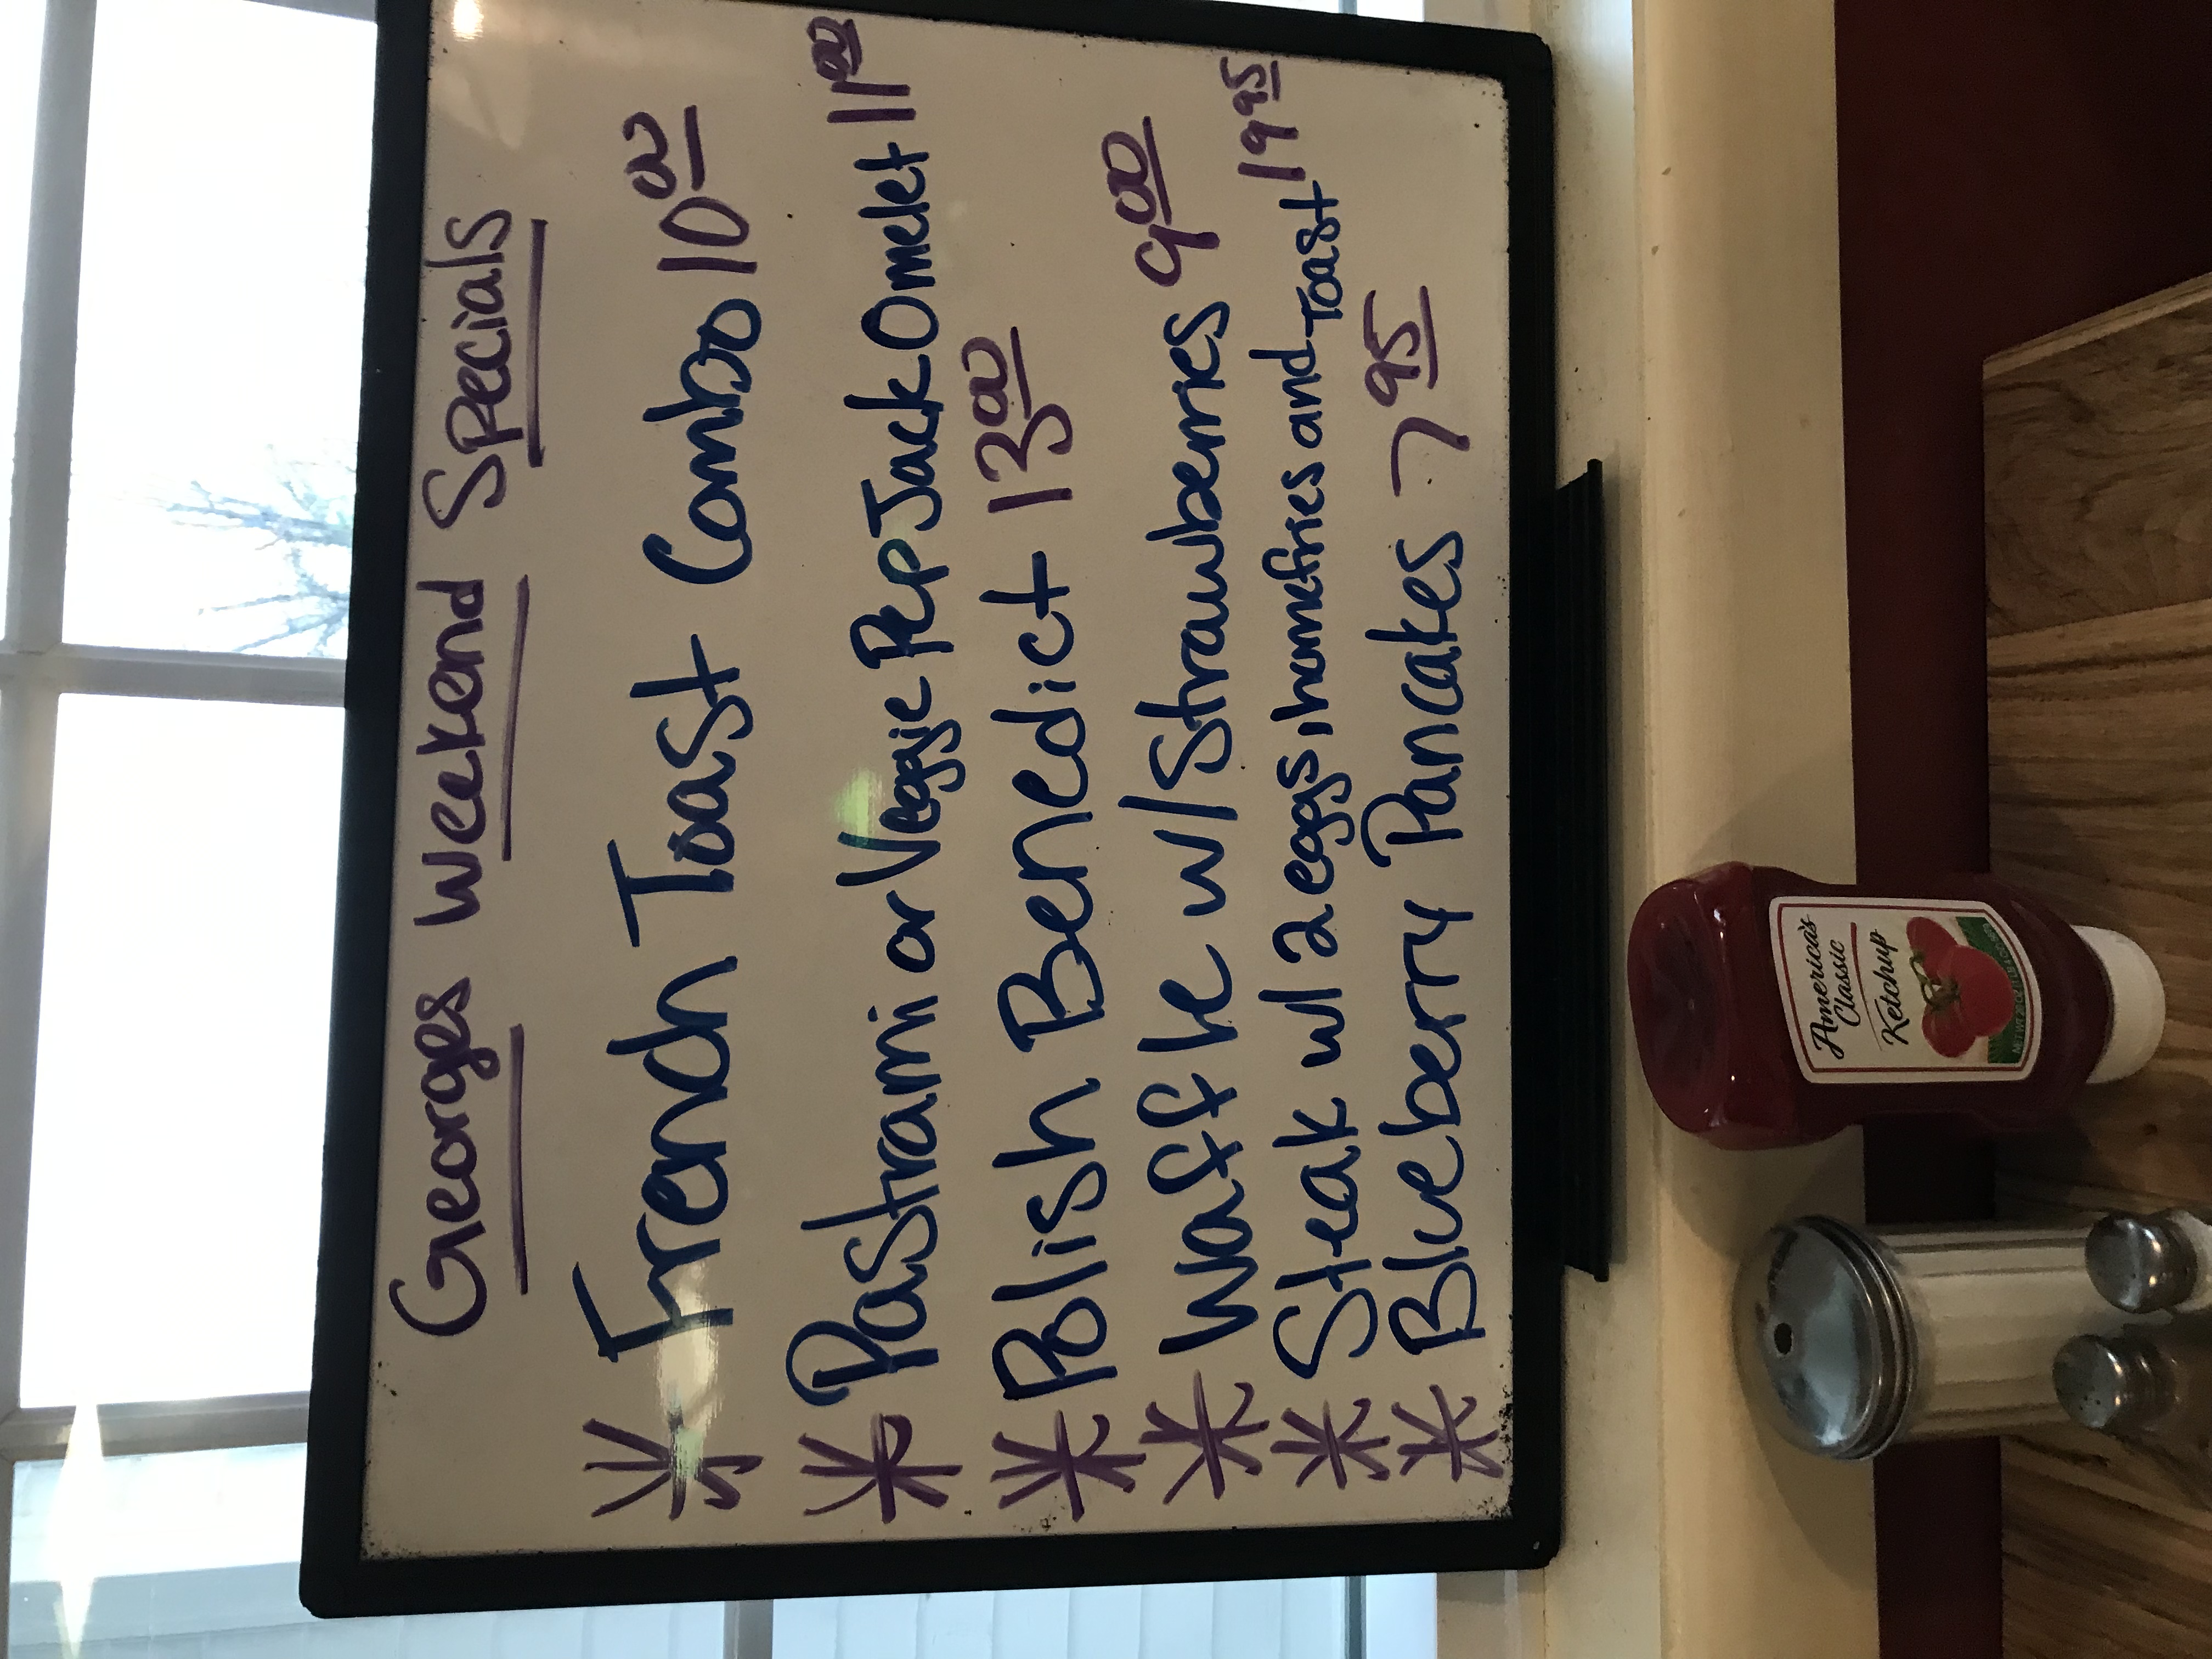 Georges Weekend Specials
* French Toast Combo 10 00
* Pastrami or Veggie Pep Jack Omelet 11 00
* Polish Benedict 13 00
* Waffle w/Strawberries 9 00
* Steak w/ 2 eggs, homefries and Toast 19 95
* Blueberry Pancakes 7 95
America's
Classic
Ketchup